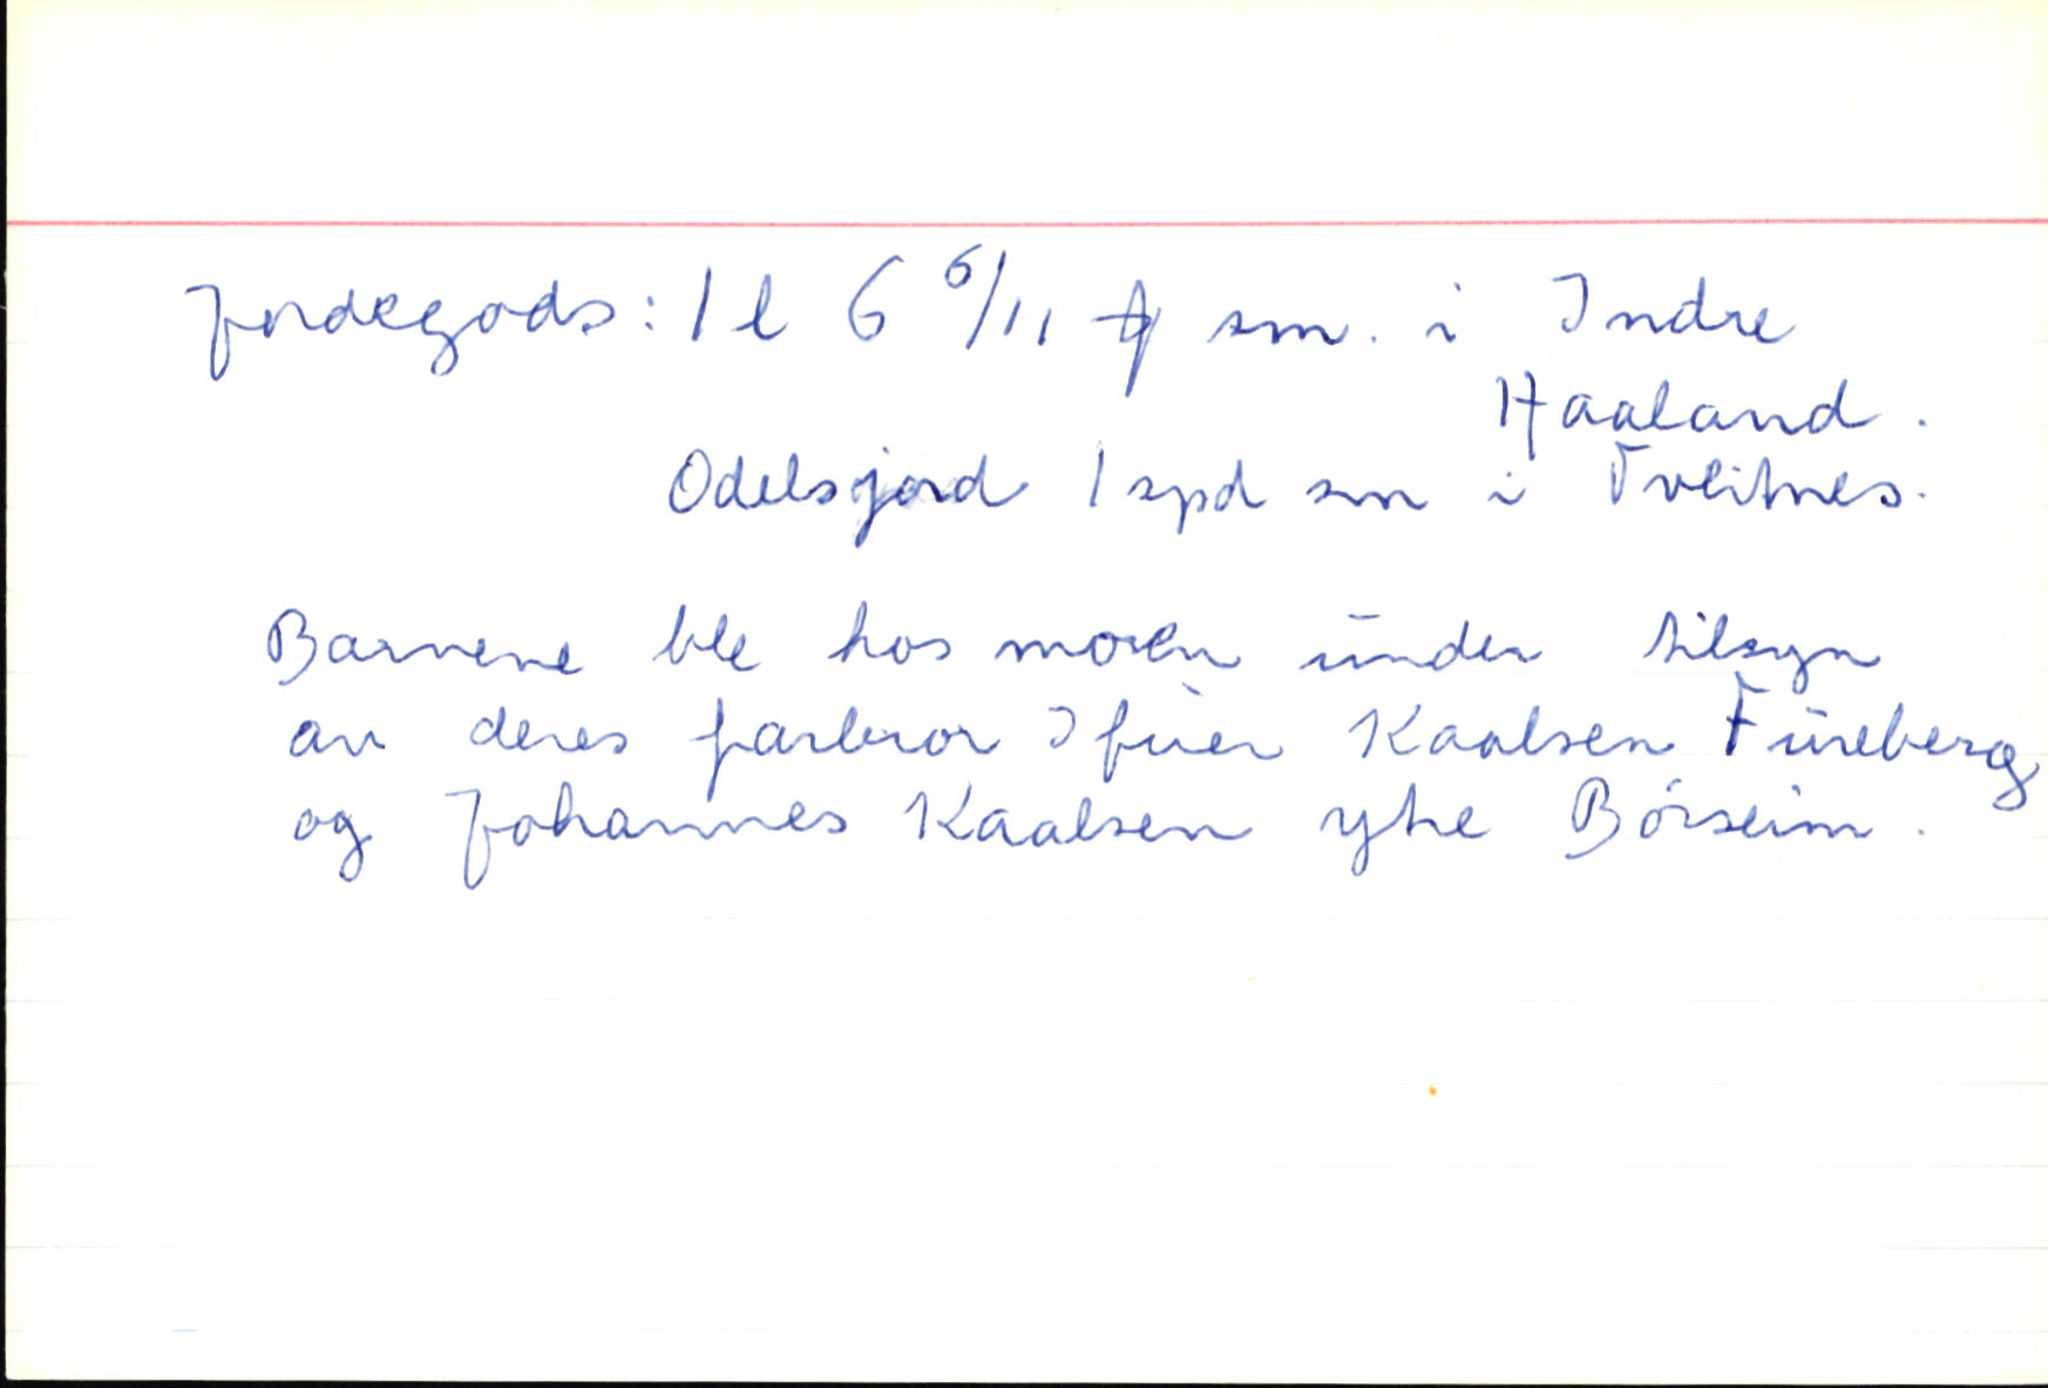 Jordegods: 1 l 6 6/11 ℔ sm. i Indre
Haaland.
Odelsjord 1 spd sm i Tveitnes.
Barnene ble hos moren under tilsyn
av deres farbror Ifuer Kaalsen Fureberg
og Johannes Kaalsen ytre Børseim.